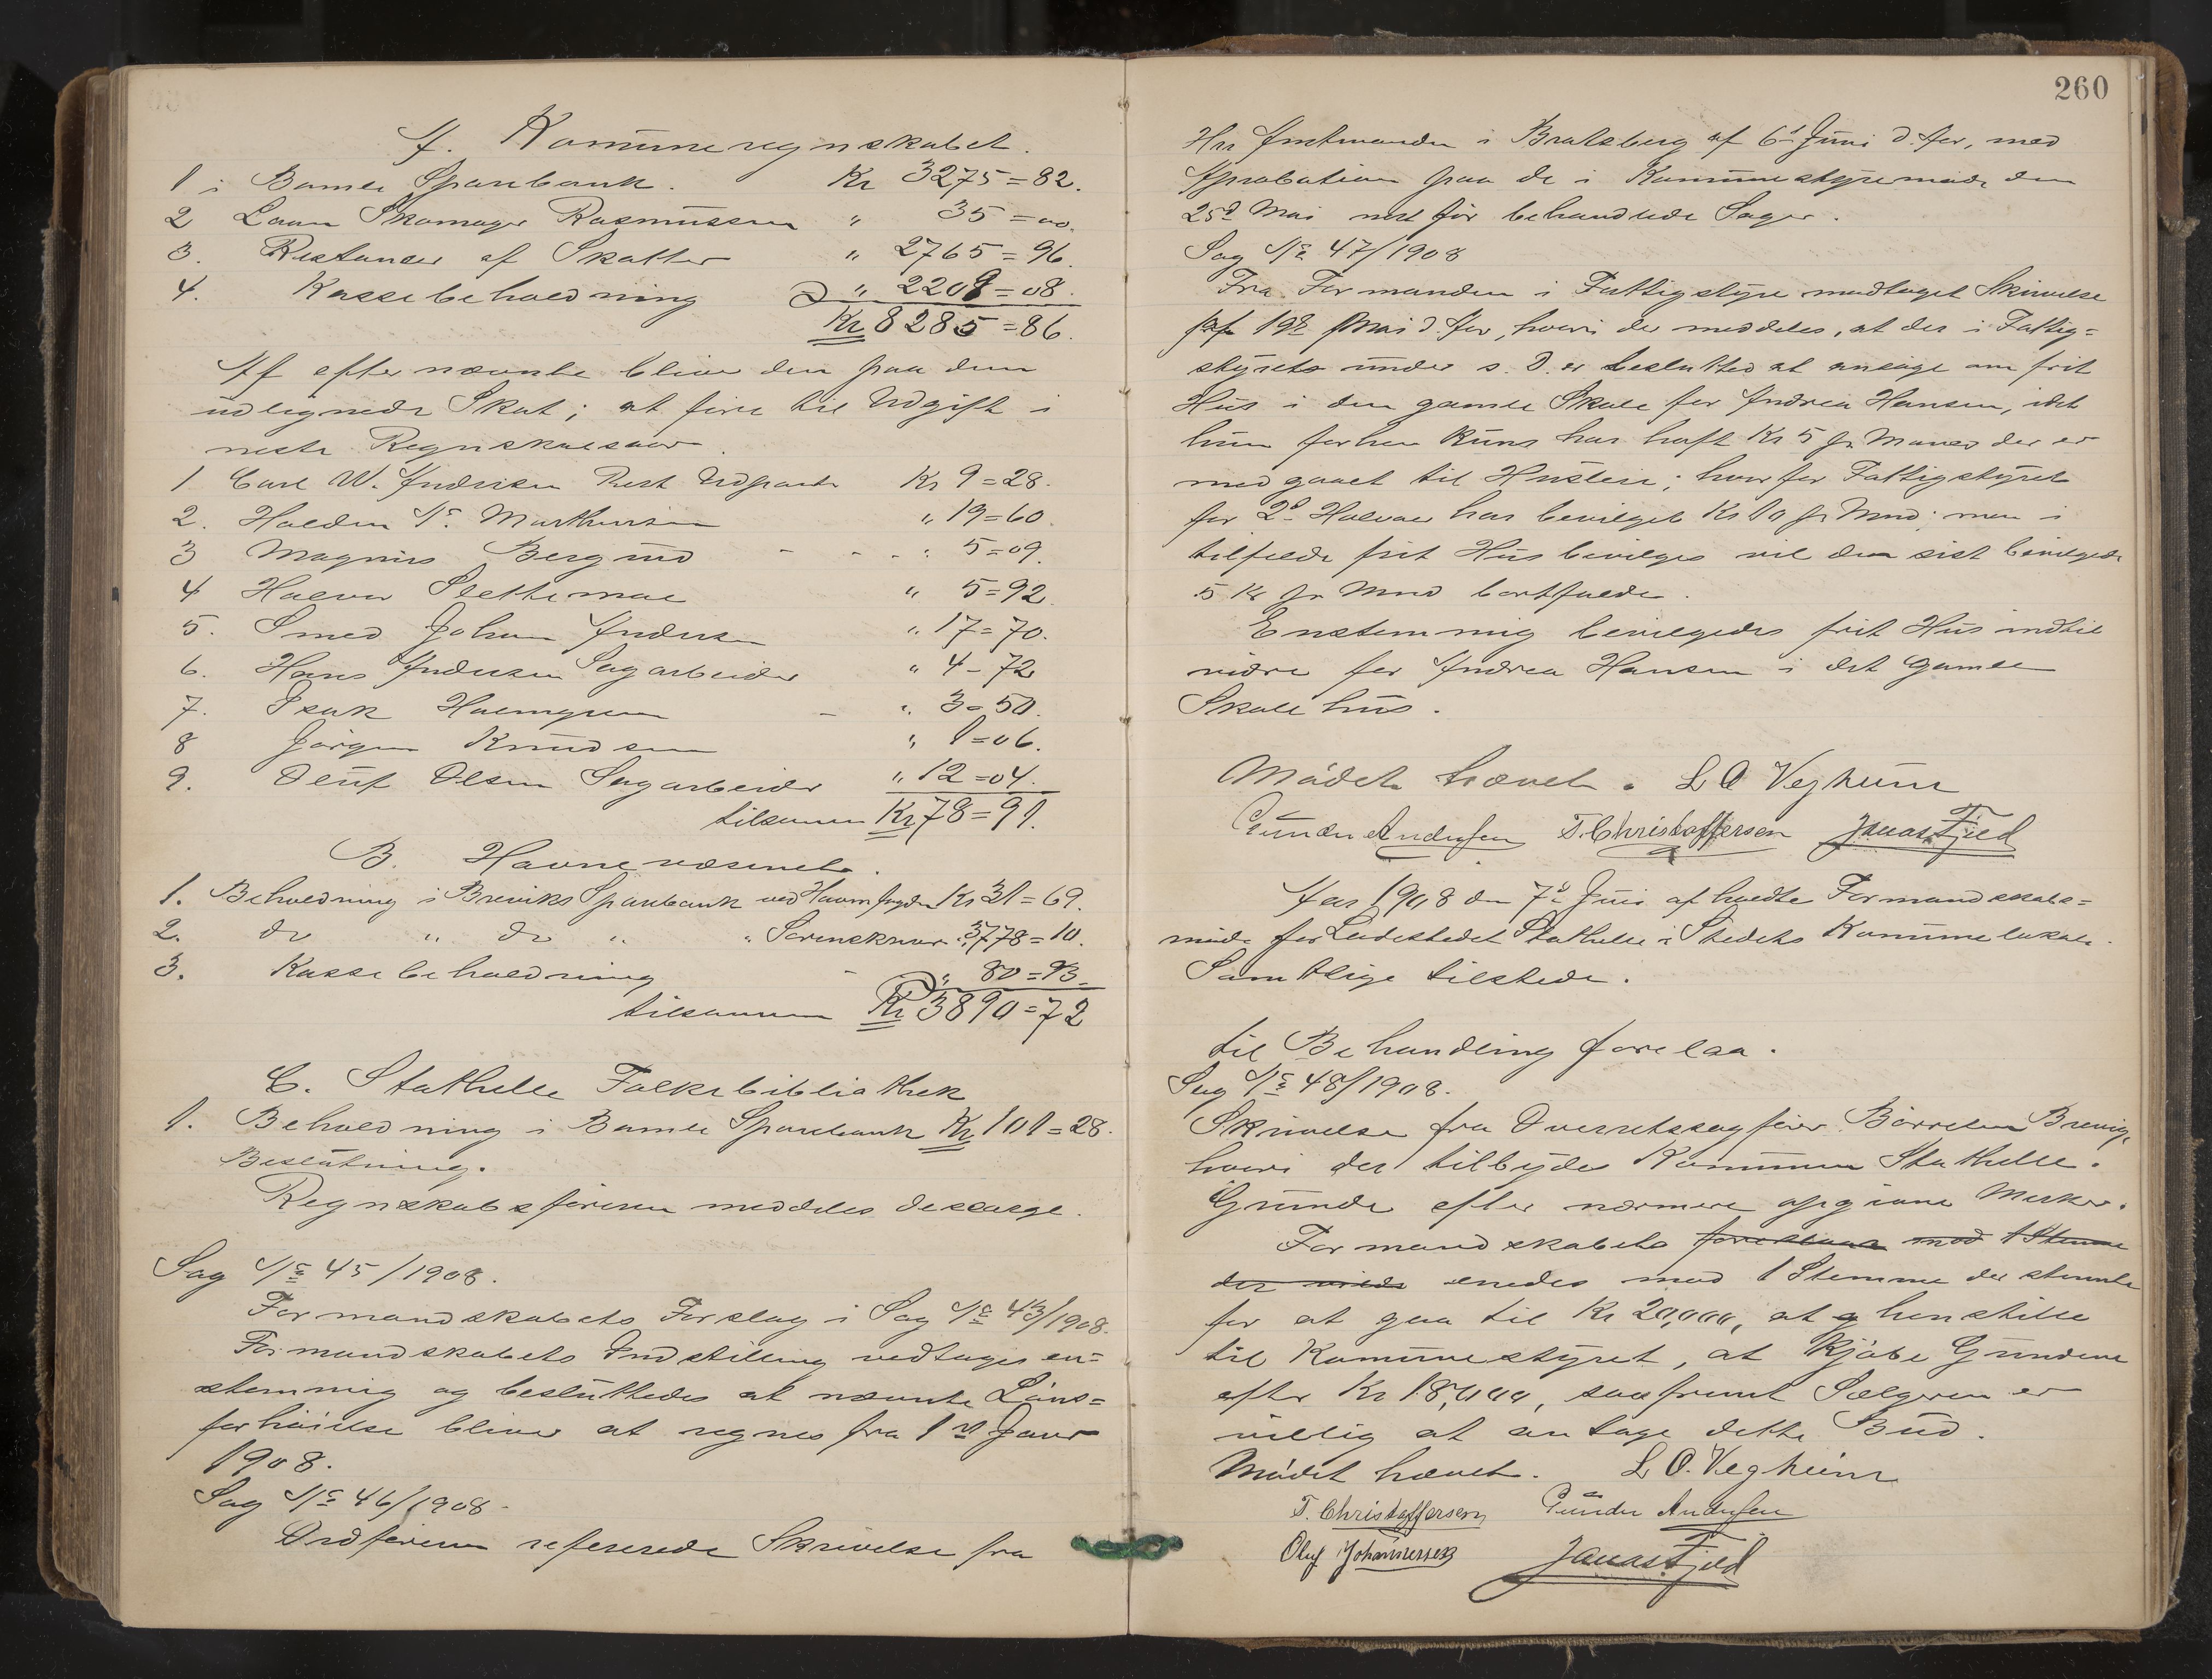 A. Kommuneregnskabet.
1 i Bamle Sparebank. Kr 3275=82.
2 Laan Skomager Rasmussen " 35=00.
3. Restancer af Skatter " 2765=96.
4. Kassebeholdning " 2209=08.
Kr 8285=86.
Af efternævnte bliver den paa dem
udlignede Skat; at føre til Udgift i
neste Regnskabsaar.
1 Carl W. Andersen Rest Kr 9=28.
2. Halden Mathisen " 19=60.
3 Magnus Berglund - - - " 5=09.
4 Halvor Slettemae " 5=92.
5. Smed Johan Andersen " 17=70.
6. Hans Andersen Sagarbeider " 4-72
7. Isak Holmgren - " 3=50.
8 Jørgen Knudsen " 1=06.
9. Oluf Olsen Sagarbeider " 12=04.
tilsammen Kr 78=91.
B. Havnevæsenet.
1. Beholdning i Breviks Sparebank ved Havnefogden Kr 31=69.
2. do " do " " Sorenskriver " 3778=10.
3. Kassebeholdning - " 80=93.
tilsammen Kr 3890=72
C. Stathelle Folkebibliothek
1. Beholdning i Bamle Sparebank Kr 101=28.
Beslutning.
Regnskabsføreren meddeles decharge.
Sag No 45/1908.
Formandskabets Forslag i Sag No 43/1908.
Formandskabets Indstilling vedtages en=
stemmig og besluttedes at nævnte Løns=
forhøielse bliver at regnes fra 1st Januar
1908.
Sag No 46/1908.
Ordføreren refererede Skrivelse fra
260
Hrr Amtmanden i Bratsberg af 6te Juni d. Aar, med
Aprobation paa de i Kommunestyremøde den
25d Mai nestfør behandlede Sager.
Sag No 47/1908
Fra Formanden i Fattigstyre modtaget Skrivelse
af 19de Mai d. Aar, hvori der meddeles, at der i Fattig=
styrets under s. D. er besluttet at ansøge om frit
Hus i den gamle Skole for Andrea Hansen, idet
hun forhen kuns har haft Kr 5 pr Maaned der er
medgaaet til Husleie; hvorfor Fattigstyret
for 2d Halvaar har bevilget Kr 10 pr Mnd; men i
tilfelde frit Hus bevilges vil den sist bevilgede
5 Kr pr Mnd bortfalde.
Enstemmig bevilgedes frit Hus indtil
videre for Andrea Hansen i det gamle
Skolehus.
Mødet hævet. L O Vegheim
Gunder Andersen T. Christoffersen Jonas Fjeld
Aar 1908 den 7de Juni afholdte Formandskabs=
møde for Ladestedet Stathelle i Stedets Kommunelokale.
Samtlige tilstede.
til Behandling forelaa.
Sag No 48/1908.
Skrivelse fra Overretssagfører Børresen Brevig,
hvori der tilbydes Kommunen Stathelle.
Grunde efter nærmere opgivne Merker.
Formandskabets foreslaar mod 1 Stemme
der vilde enedes mod 1 Stemme der stemte
for at gaa til Kr 20,000, at henstille
til Kommunestyret, at Kjøbe Grundene
efter Kr 18,000, saafremt Sælgeren er
villig at antage dette Bud.
Mødet hævet. L O. Vegheim
T. Christoffersen Gunder Andersen
Oluf Johannessen Jonas Fjeld